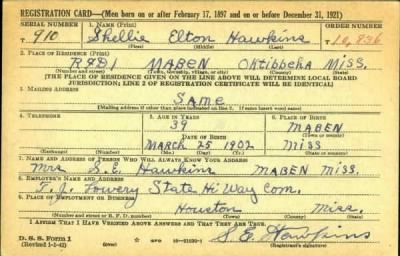 REGISTRATION CARD—(Men born on or after February 17, 1897 and on or before December 31, 1921)
SERIAL NUMBER 1. NAME (Print) ORDER NUMBER
910 Shellie Elton Hawkins 10,836
(First) (Middle) (Last)
2. PLACE OF RESIDENCE (Print)
RFD1 MABEN Oktibbeha Miss.
(Number and street) (Town, township, village, or city) (County) (State)
[THE PLACE OF RESIDENCE GIVEN ON THE LINE ABOVE WILL DETERMINE LOCAL BOARD
JURISDICTION; LINE 2 OF REGISTRATION CERTIFICATE WILL BE IDENTICAL]
3. MAILING ADDRESS
SAME
(Mailing address if other than place indicated on line 2. If same insert word same)
4. TELEPHONE 5. AGE IN YEARS 6. PLACE OF BIRTH
39 MABEN
DATE OF BIRTH (Town or county)
MARCH 25 1902 MISS
(Mo.) (Day) (Yr.) (State or country)
7. NAME AND ADDRESS OF PERSON WHO WILL ALWAYS KNOW YOUR ADDRESS
Mrs S.E. Hawkins MABEN Miss.
8. EMPLOYER'S NAME AND ADDRESS
T.J. Lowery State Hi Way Com.
9. PLACE OF EMPLOYMENT OR BUSINESS
Houston Miss.
(Number and street or R. F. D. number) (Town) (County) (State)
I AFFIRM THAT I HAVE VERIFIED ABOVE ANSWERS AND THAT THEY ARE TRUE.
D. S. S. Form 1
(Revised 1-1-42) (over) 16-21630-1 S.E. Hawkins
(Registrant's signature)